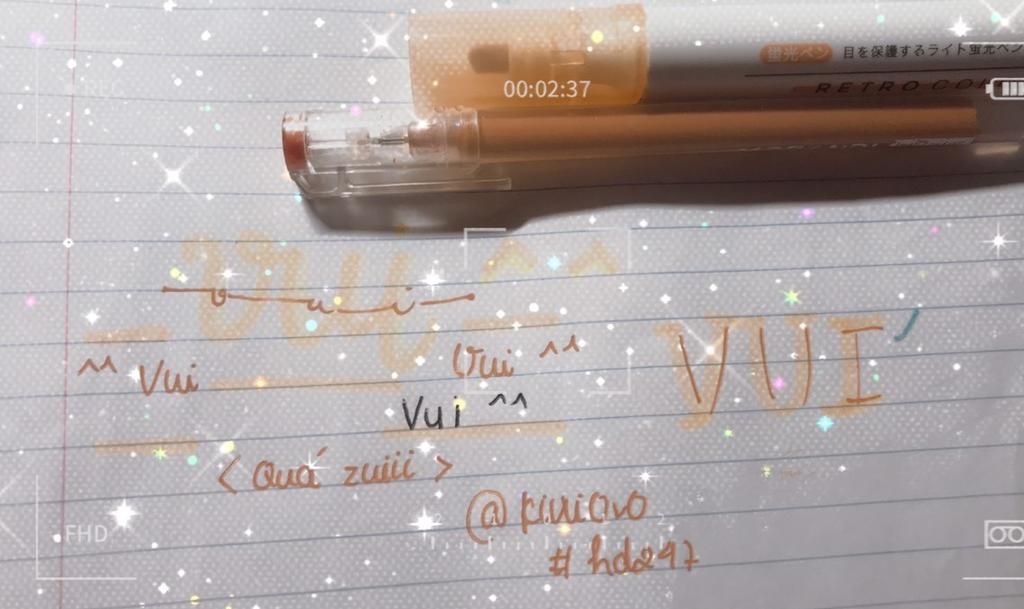 蛍光ペン 目を保護するライト蛍光ペン
RETRO COL
00:02:37
vui ^^
v u i
^^ Vui
Vui ^^
VUI
Vui ^^
< Quá zuiii >
#hd247
FHD